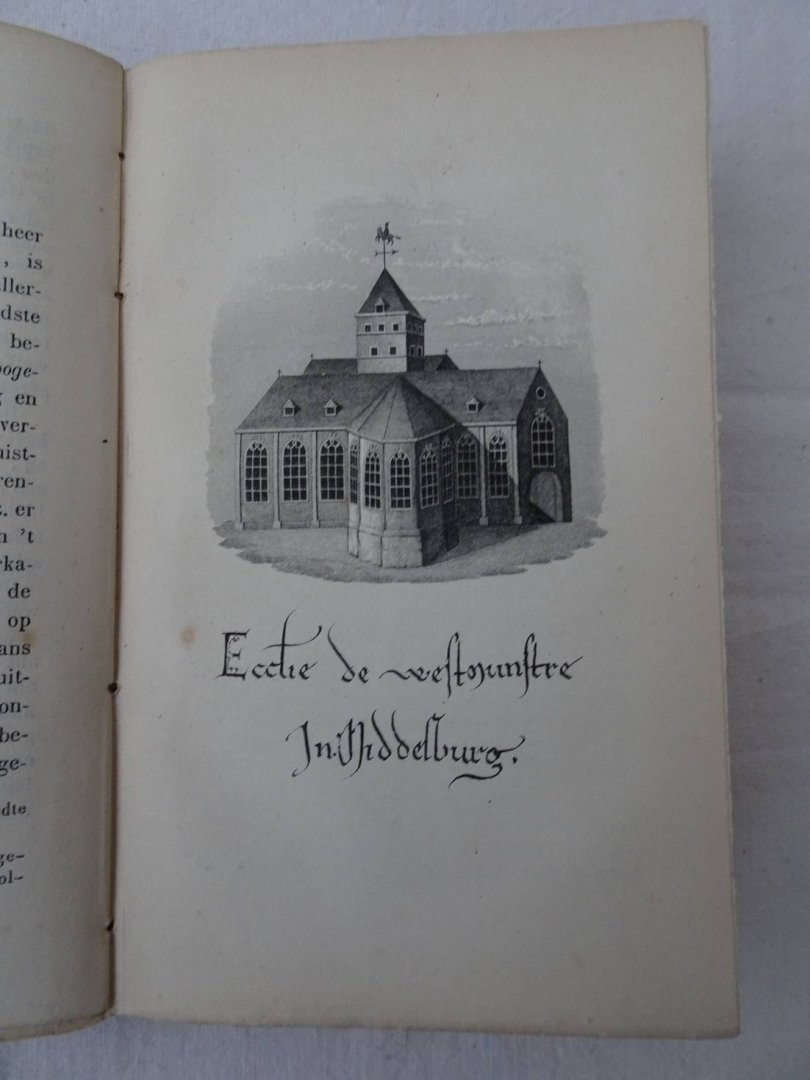 heer
, is
ller-
dste
be-
oge-
en
ver-
uist-
ren-
. er
n 't
rka-
de
op
ans
uit-
on-
be-
ge-
dte
ge-
ol-
Ecclie de westmunstre
In Middelburg.